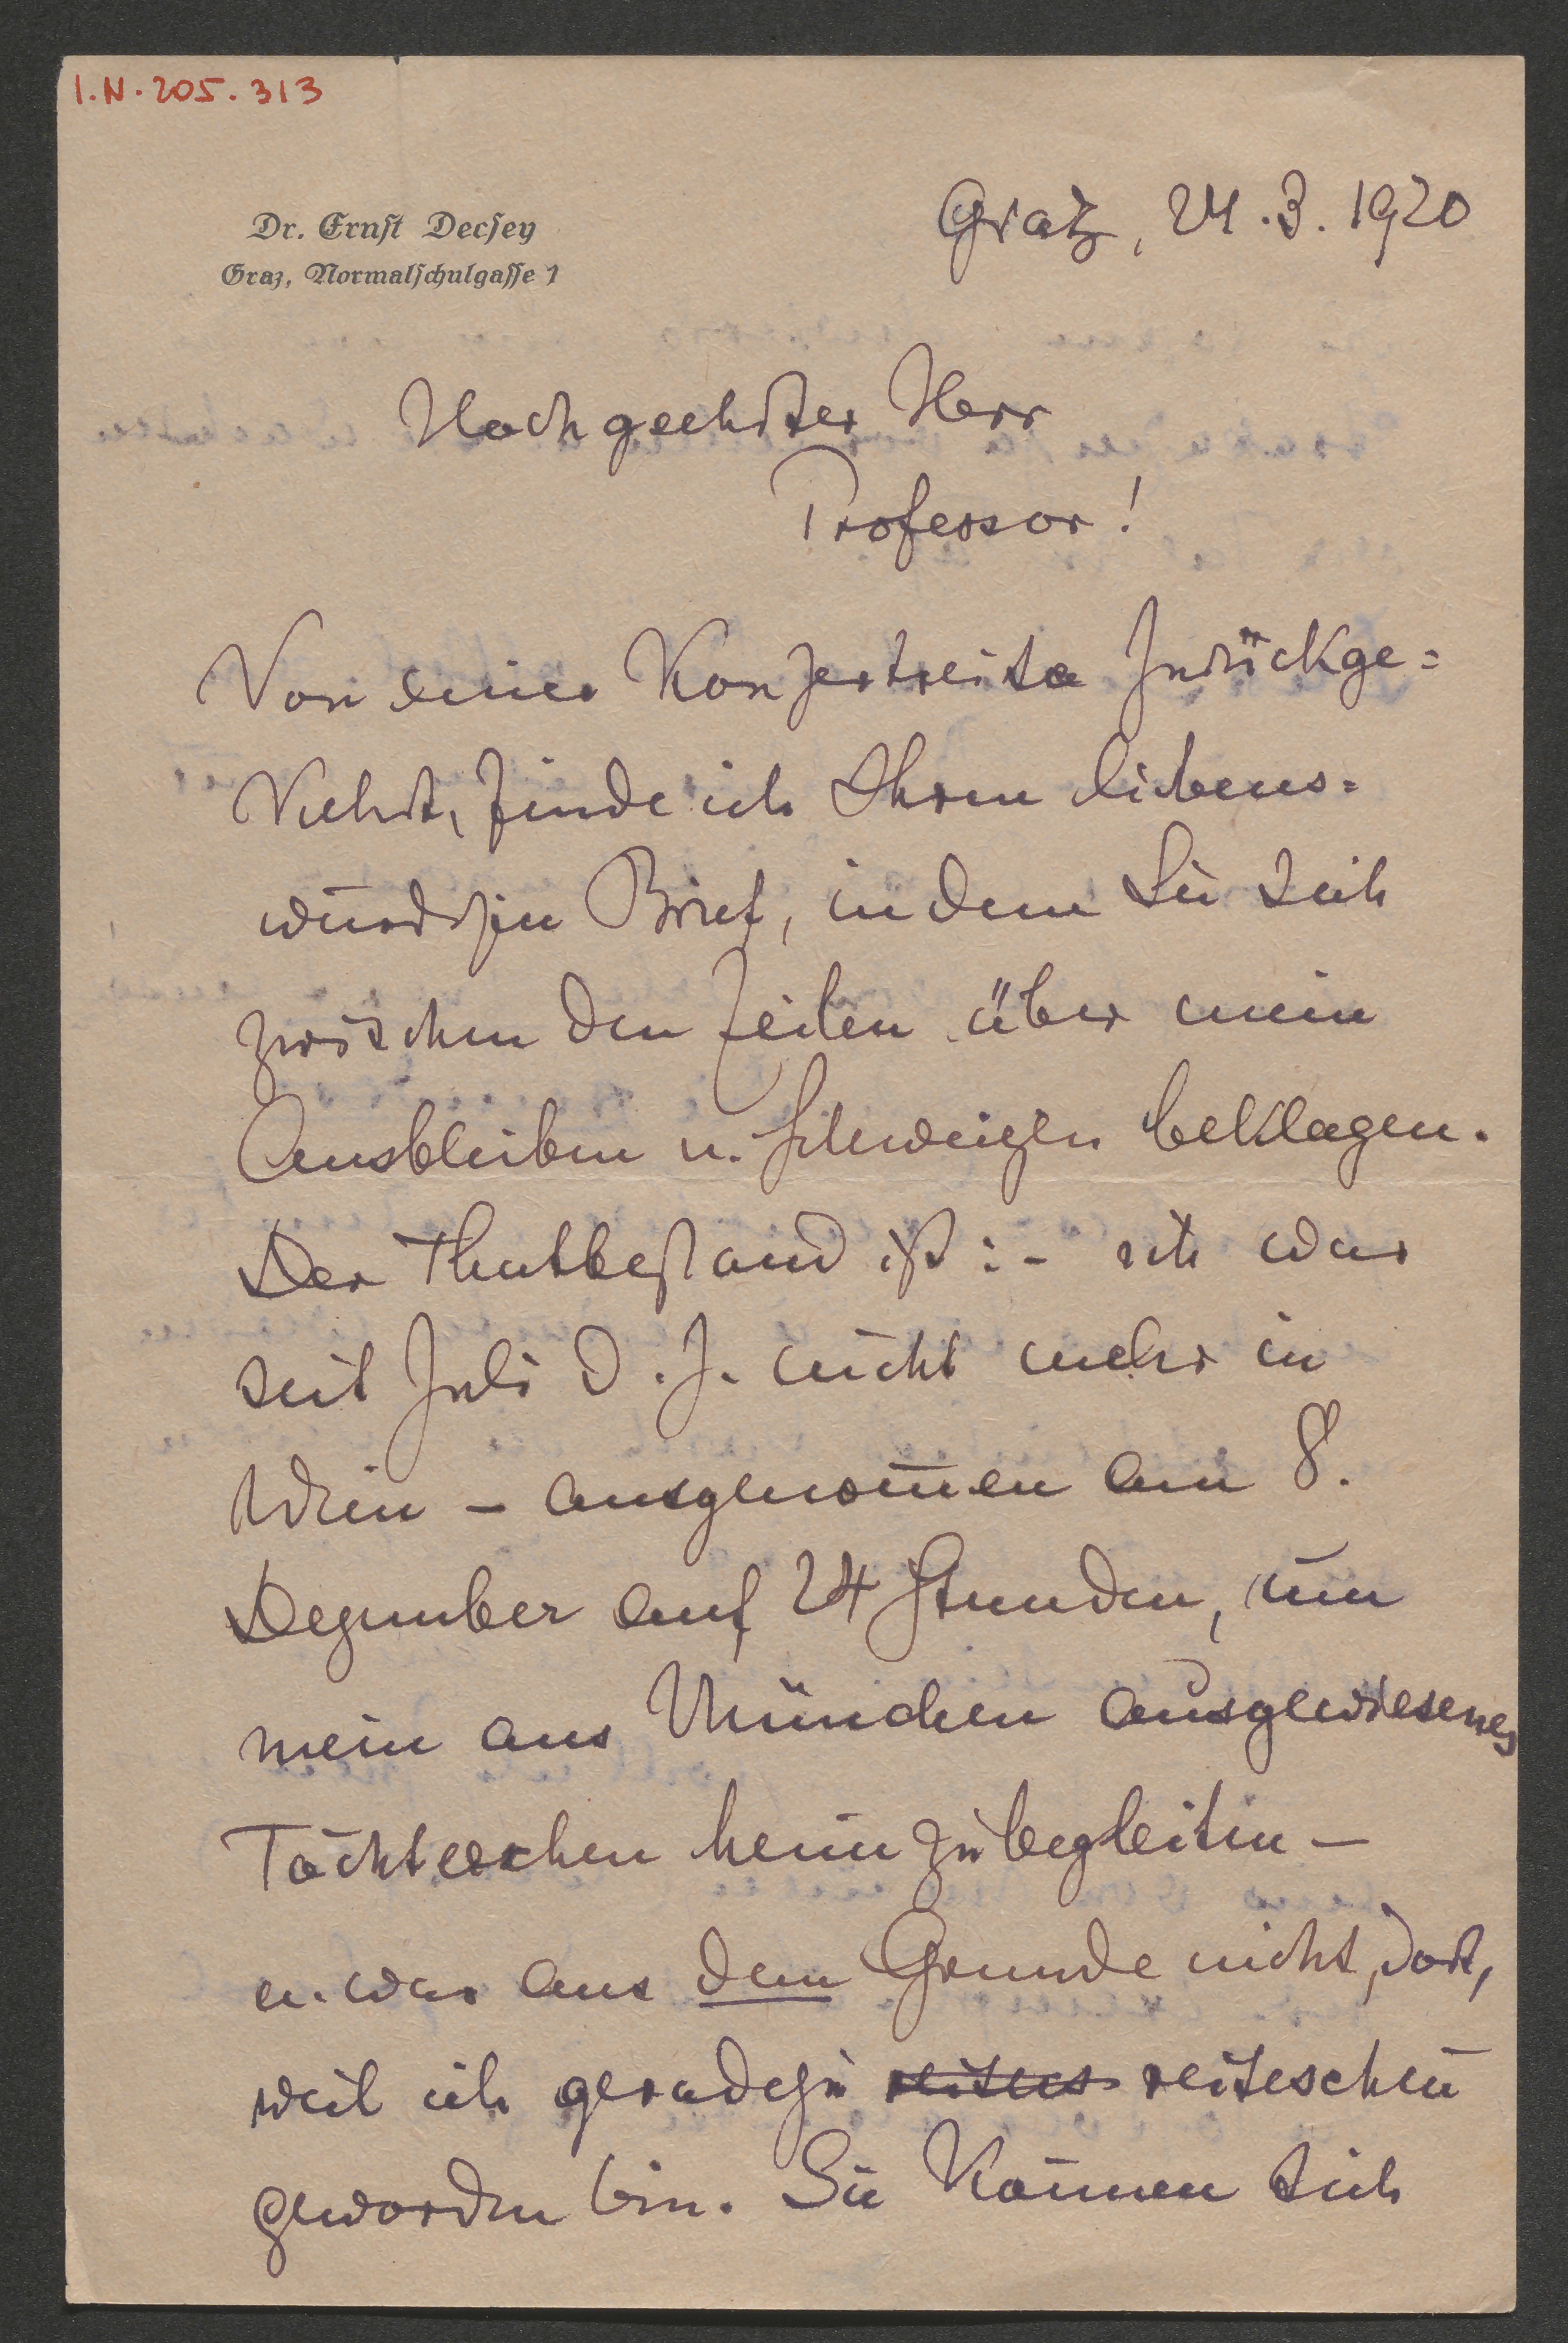 I.N. 205.313
Dr. Ernst Decsey
Graz, Normalschulgasse 1
Graz, 24.3.1920
Hochgeehrter Herr
Professor!
Von einer Konzertreise zurückge=
kehrt, finde ich Ihren liebens=
würdigen Brief, in dem Sie sich
zwischen den Zeilen über mein
Ausbleiben u. Schweigen beklagen.
Der Thatbestand ist: - ich war
seit Juli d. J. nicht mehr in
Wien – ausgenom̄en am 8.
Dezember auf 24 Stunden, um
mein aus München ausgewiesenes
Töchterchen heimzubegleiten –
u. war aus dem Grunde nicht dort,
weil ich geradezu reisescheu
geworden bin. Sie können sich